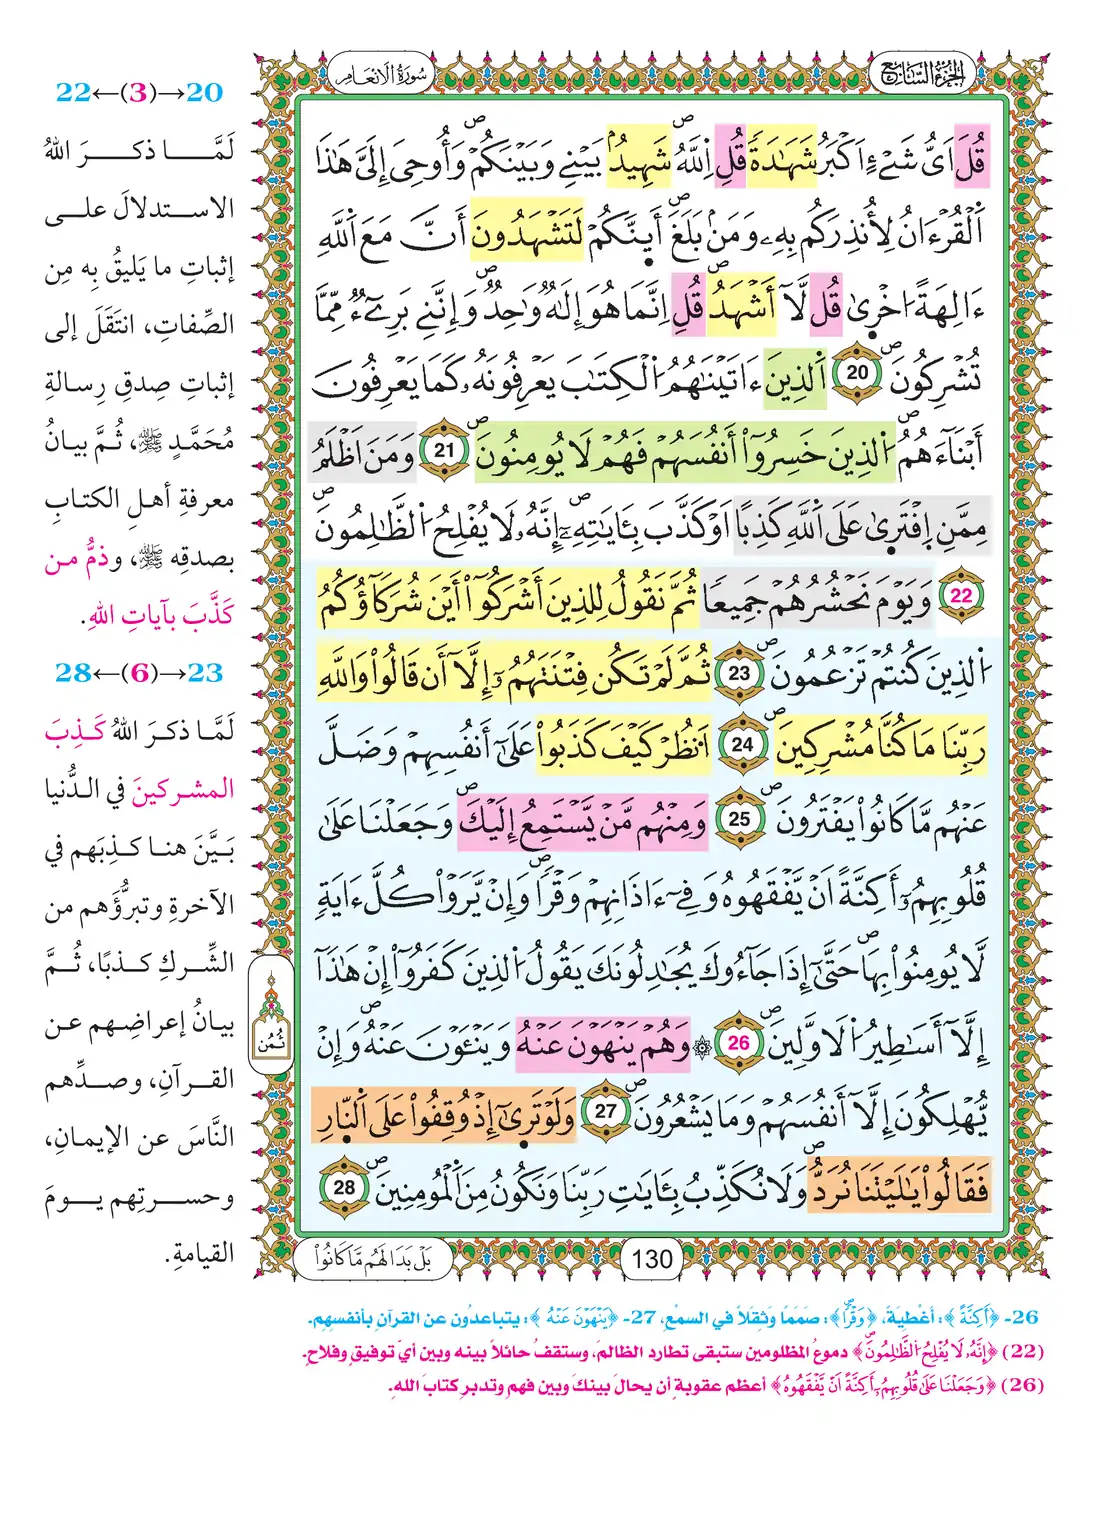 الجزء السابع
سورة الانعام
قُلَ اَيُّ شَےْءٍ اَكْبَرُ شَهَٰدَةً قُلِ اِ۬للَّهُ شَهِيدُۢ بَيْنِے وَبَيْنَكُمْ وَأُوحِيَ إِلَيَّ هَٰذَا
اَ۬لْقُرْءَانُ لِأُنذِرَكُم بِهِۦ وَمَنۢ بَلَغَ أَئِنَّكُمْ لَتَشْهَدُونَ أَنَّ مَعَ اَ۬للَّهِ
ءَالِهَةً اُخْرۭيٰ قُل لَّآ أَشْهَدُ قُلِ اِنَّمَا هُوَ إِلَٰهٞ وَٰحِدٞ وَإِنَّنِے بَرِےٓءٞ مِّمَّا
تُشْرِكُونَ 20 اَ۬لذِينَ ءَاتَيْنَٰهُمُ اُ۬لْكِتَٰبَ يَعْرِفُونَهُۥ كَمَا يَعْرِفُونَ
أَبْنَآءَهُمُ اُ۬لذِينَ خَسِرُوٓاْ أَنفُسَهُمْ فَهُمْ لَا يُومِنُونَ 21 وَمَنَ اَظْلَمُ
مِمَّنِ اِ۪فْتَر۪يٰ عَلَي اَ۬للَّهِ كَذِبًا اَوْ كَذَّبَ بِـَٔايَٰتِهِۦٓ إِنَّهُۥ لَا يُفْلِحُ اُ۬لظَّٰلِمُونَ
22 وَيَوْمَ نَحْشُرُهُمْ جَمِيعٗا ثُمَّ نَقُولُ لِلذِينَ أَشْرَكُوٓاْ أَيْنَ شُرَكَآؤُكُمُ
اُ۬لذِينَ كُنتُمْ تَزْعُمُونَ 23 ثُمَّ لَمْ تَكُن فِتْنَتَهُمُۥٓ إِلَّآ أَن قَالُواْ وَاللَّهِ
رَبِّنَا مَا كُنَّا مُشْرِكِينَ 24 اَ۟نظُرْ كَيْفَ كَذَبُواْ عَلَيٰٓ أَنفُسِهِمْ وَضَلَّ
عَنْهُم مَّا كَانُواْ يَفْتَرُونَ 25 وَمِنْهُم مَّنْ يَّسْتَمِعُ إِلَيْكَ وَجَعَلْنَا عَلَيٰ
قُلُوبِهِمُۥٓ أَكِنَّةً اَنْ يَّفْقَهُوهُ وَفِےٓ ءَاذَانِهِمْ وَقْرٗا وَإِنْ يَّرَوْاْ كُلَّ ءَايَةٖ
لَّا يُومِنُواْ بِهَا حَتَّيٰٓ إِذَا جَآءُوكَ يُجَٰدِلُونَكَ يَقُولُ اُ۬لذِينَ كَفَرُوٓاْ إِنْ هَٰذَآ
إِلَّآ أَسَٰطِيرُ اُ۬لَاوَّلِينَ 26 وَهُمْ يَنْهَوْنَ عَنْهُ وَيَنْـَٔوْنَ عَنْهُ وَإِنْ
يُّهْلِكُونَ إِلَّآ أَنفُسَهُمْ وَمَا يَشْعُرُونَ 27 وَلَوْ تَر۪يٰٓ إِذْ وُقِفُواْ عَلَي اَ۬لنَّارِ
فَقَالُواْ يَٰلَيْتَنَا نُرَدُّ وَلَا نُكَذِّبُ بِـَٔايَٰتِ رَبِّنَا وَنَكُونُ مِنَ اَ۬لْمُومِنِينَ 28
ثُمُن
130
بَلْ بَدَا لَهُم مَّا كَانُواْ
20→(3)←22
لَمَّا ذكرَ اللهُ
الاستدلالَ على
إثباتِ ما يَليقُ به مِن
الصِّفاتِ، انتَقَلَ إلى
إثباتِ صِدقِ رِسالةِ
مُحَمَّدٍ ﷺ، ثُمَّ بيانُ
معرفةِ أهلِ الكتابِ
بصدقِه ﷺ، وذمُّ من
كَذَّبَ بآياتِ اللهِ.
23→(6)←28
لَمَّا ذكرَ اللهُ كَذِبَ
المشركينَ في الدُّنيا
بَيَّنَ هنا كذِبَهم في
الآخرةِ وتبرُّؤَهم من
الشِّركِ كذبًا، ثُمَّ
بيانُ إعراضِهم عن
القرآنِ، وصدِّهم
النَّاسَ عن الإيمانِ،
وحسرتِهم يومَ
القيامةِ.
26- ﴿أَكِنَّةً﴾: أغْطِيَةً، ﴿وَقْرٗا﴾: صَمَمًا وَثِقَلاً في السمْعِ، 27- ﴿يَنْهَوْنَ عَنْهُ﴾: يتباعدُون عن القرآنِ بأنفسِهِم.
(22) ﴿إِنَّهُۥ لَا يُفْلِحُ اُ۬لظَّٰلِمُونَ﴾ دموعُ المظلومين ستبقى تطارد الظالم، وستقفُ حائلاً بينه وبين أيّ توفيقٍ وفلاحٍ.
(26) ﴿وَجَعَلْنَا عَلَيٰ قُلُوبِهِمُۥٓ أَكِنَّةً اَنْ يَّفْقَهُوهُ﴾ أعظم عقوبةٍ أن يحالَ بينكَ وبين فهمِ وتدبرِ كتابَ اللهِ.